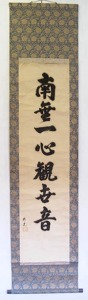 南無一心観世音